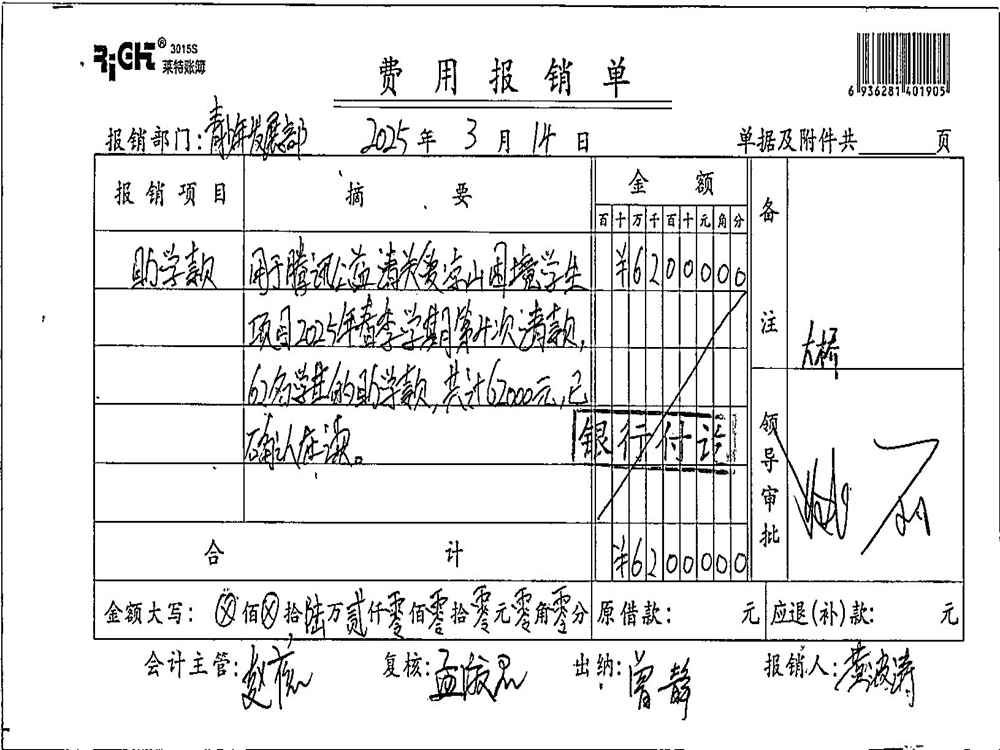 RiGHT® 3015S
莱特账簿
费用报销单
6 936281 401905
报销部门：青少年发展部 2025年3月14日 单据及附件共 页
报销项目 摘要 金额 备注
百十万千百十元角分
助学款 用于腾讯公益涛关爱凉山困境学生 ¥6200000
项目2025年春季学期第4次请款，
62名学生的助学款，共计62000元，已
确认在读。
大桥
银行付讫
领导审批
合计 ¥6200000
金额大写：ⓧ佰ⓧ拾陆万贰仟零佰零拾零元零角零分 原借款： 元 应退(补)款： 元
会计主管： 复核： 出纳：曾静 报销人：黄波涛